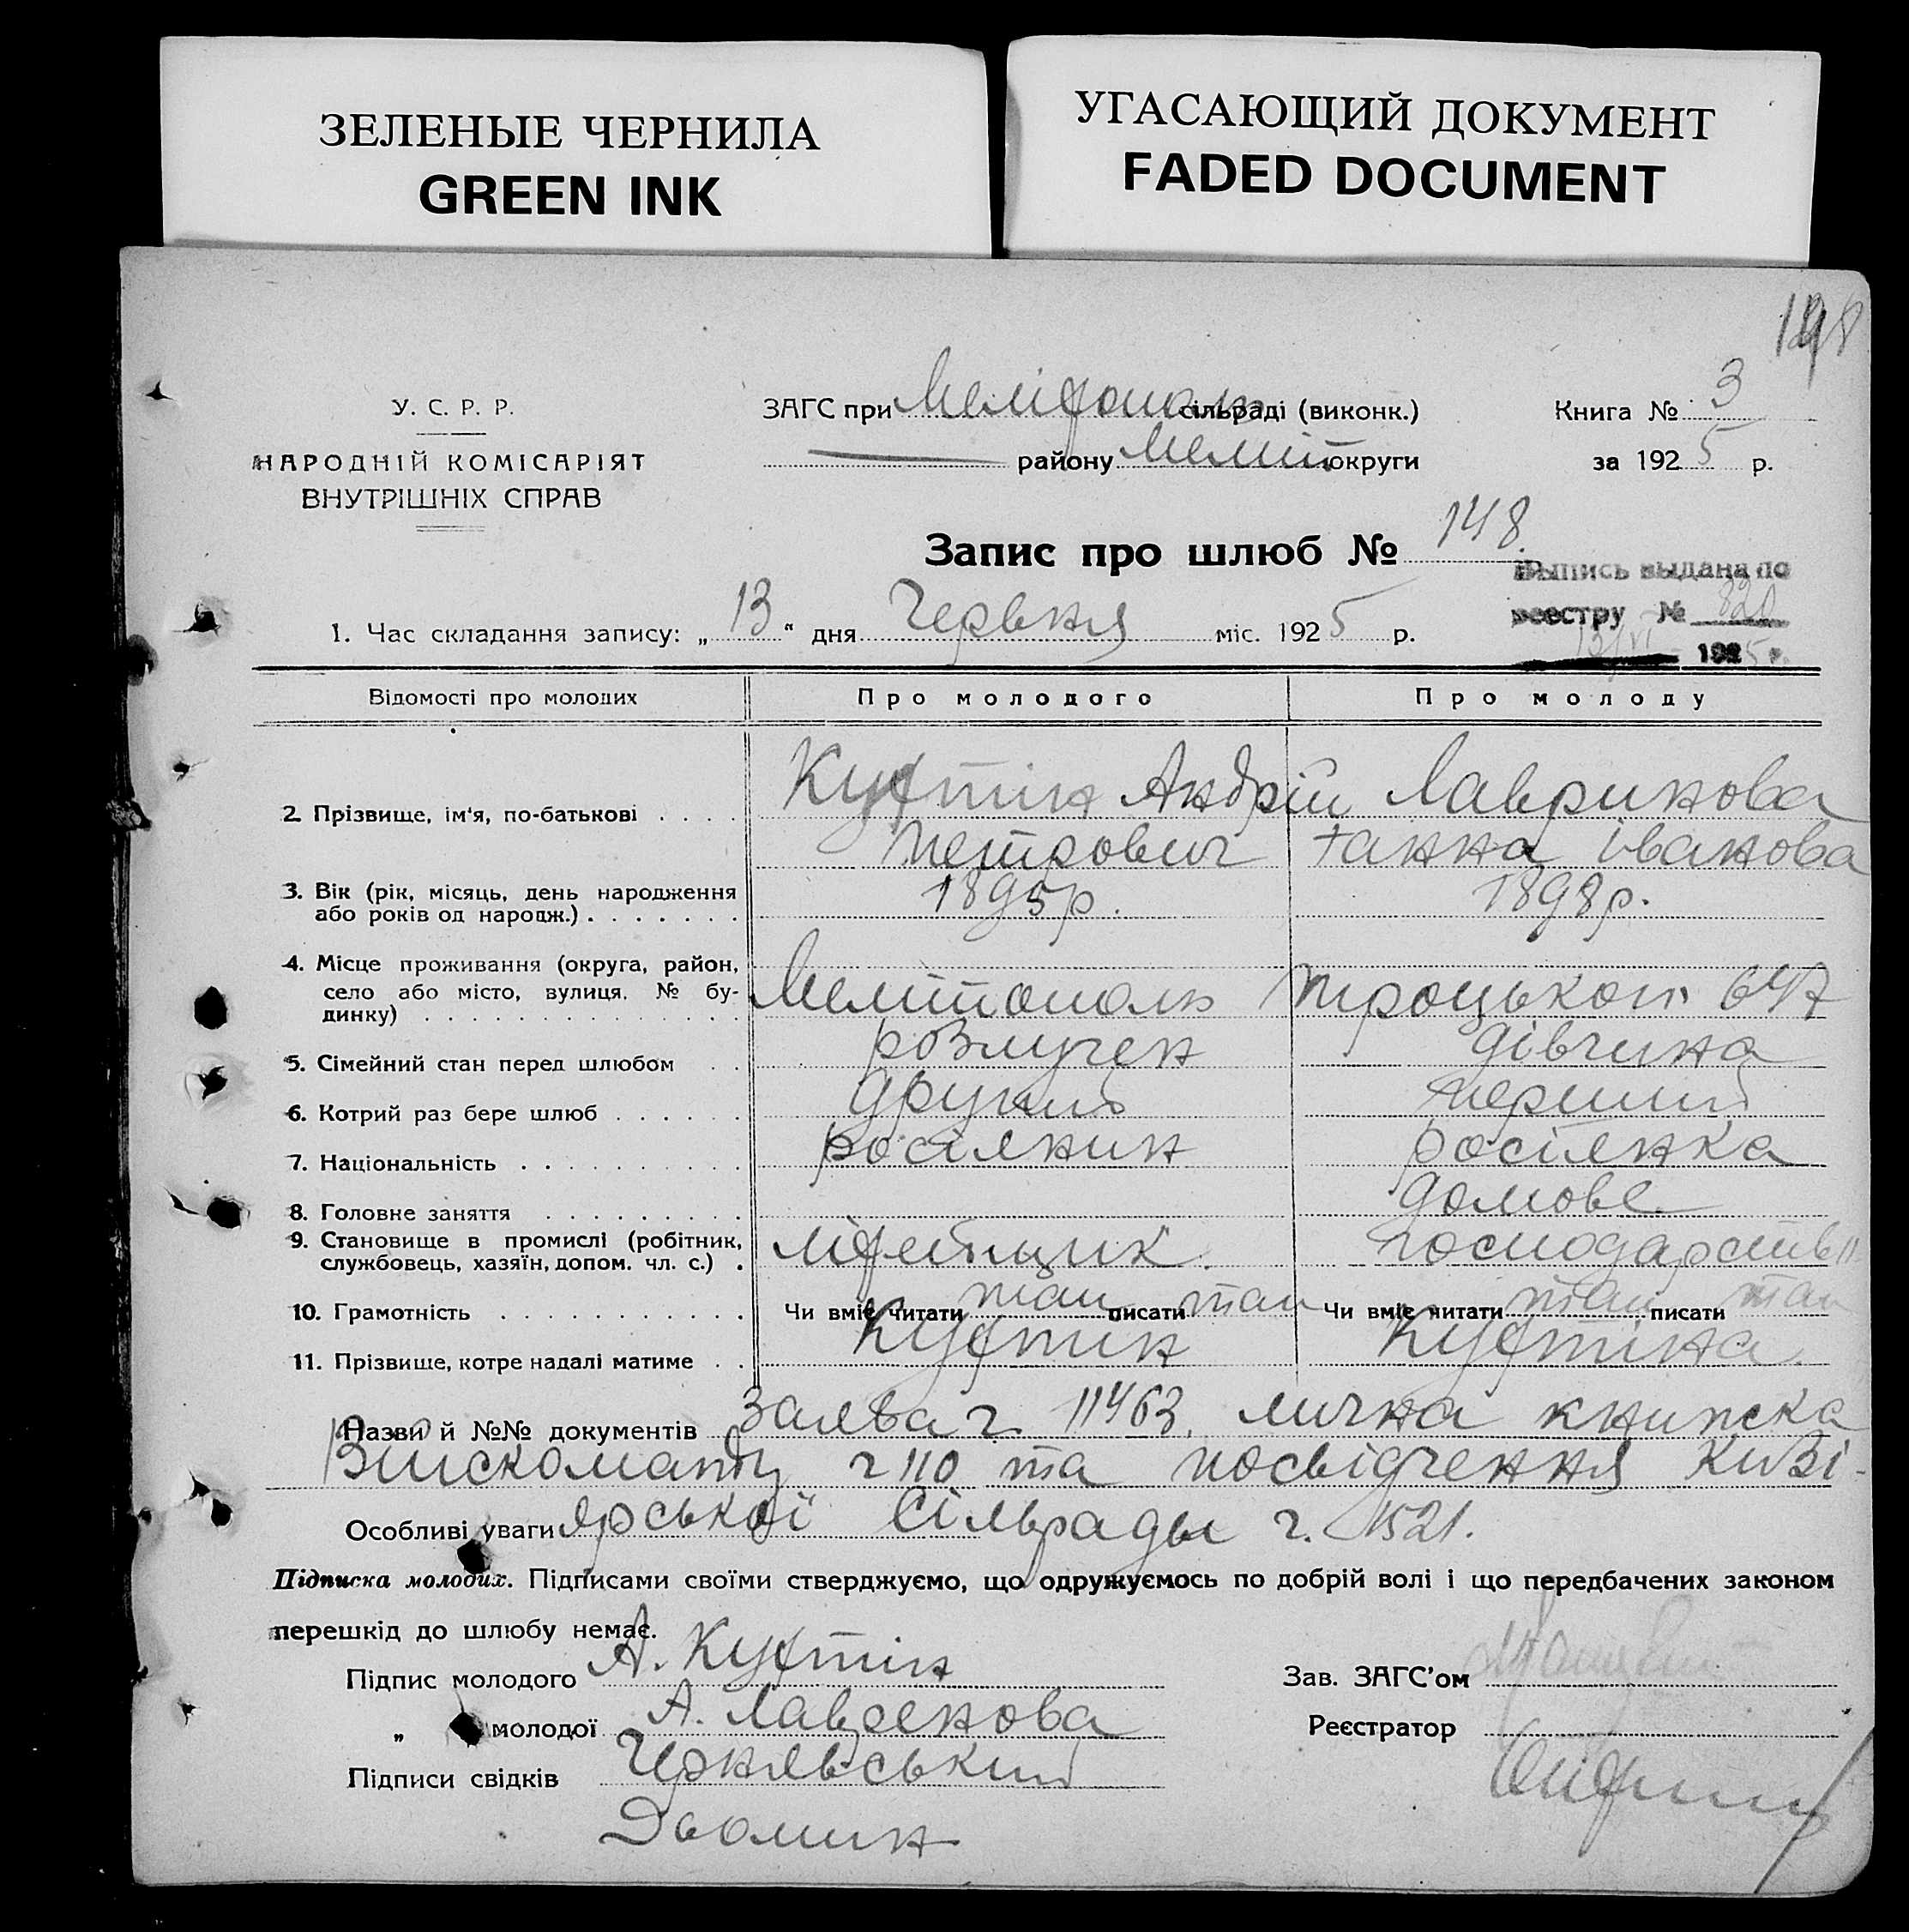 ЗЕЛЕНЫЕ ЧЕРНИЛА
GREEN INK
УГАСАЮЩИЙ ДОКУМЕНТ
FADED DOCUMENT
198
У. С. Р. Р.
НАРОДНІЙ КОМІСАРІЯТ
ВНУТРІШНІХ СПРАВ
ЗАГС при Мелітополь сільраді (виконк.)
району Меліт округи
Книга № 3
за 1925 р.
Запис про шлюб № 148
Выпись выдана по
реестру № 820
13/VI 1925 г.
1. Час складання запису: „13“ дня Червня міс. 1925 р.
Відомості про молодих Про молодого Про молоду
2. Прізвище, ім'я, по-батькові . . . . Куфтін Андрій Лавринова
Петрович Ганна Іванова
3. Вік (рік, місяць, день народження
або років од народж.) . . . . . . . 1895р. 1898р.
4. Місце проживання (округа, район,
село або місто, вулиця. № бу-
динку) . . . . . . . . . . . . . Мелітополь Троцького 647
5. Сімейний стан перед шлюбом . . розлучен дівчина
6. Котрий раз бере шлюб . . . . . . другий перший
7. Національність . . . . . . . . . . росіянин росіянка
8. Головне заняття . . . . . . . . . домове
9. Становище в промислі (робітник,
службовець, хазяїн, допом. чл. с.) . господарств
10. Грамотність . . . . . . . . . . . Чи вміє читати так писати так Чи вміє читати так писати так
11. Прізвище, котре надалі матиме . . Куфтин Куфтіна
Назви й №№ документів Заява ч. 11463, лична книжка
Війскомату ч 110 та посвідчення Кизі-
Особливі уваги ярської Сільради ч. 1521.
Підписка молодих. Підписами своїми стверджуємо, що одружуємось по добрій волі і що передбачених законом
перешкід до шлюбу немає.
Підпис молодого А. Куфтін
Зав. ЗАГС'ом
„ молодої А. Лавренова
Реєстратор
Підписи свідків Чернявський
Дьомин